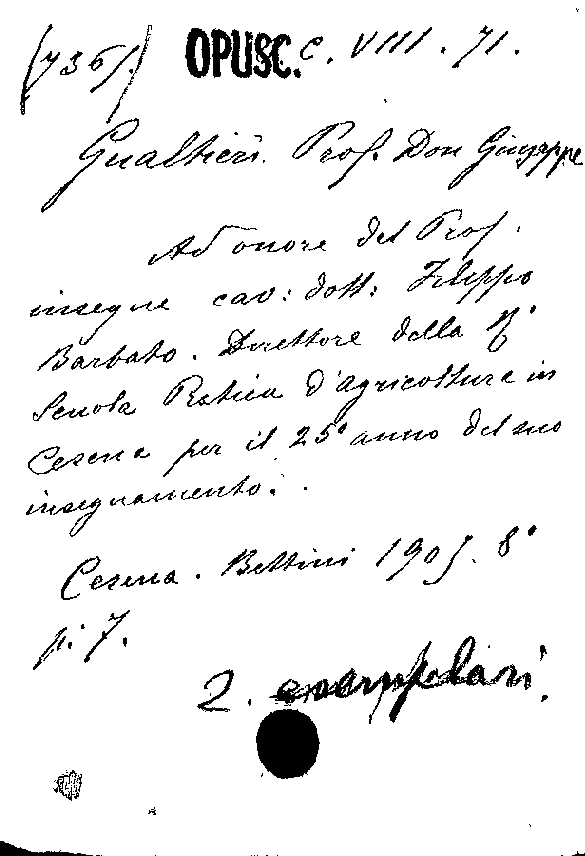 (7361.) OPUSC. C. VIII. 71.
Gualtieri. Prof. Don Giuseppe
Ad onore del Prof.
insegne cav: dott: Filippo
Barbato. Direttore della R.ª
Scuola Pratica d'agricoltura in
Cesena per il 25º anno del suo
insegnamento.
Cesena. Bettini 1905. 8º
p. 7.
2. esemplari.